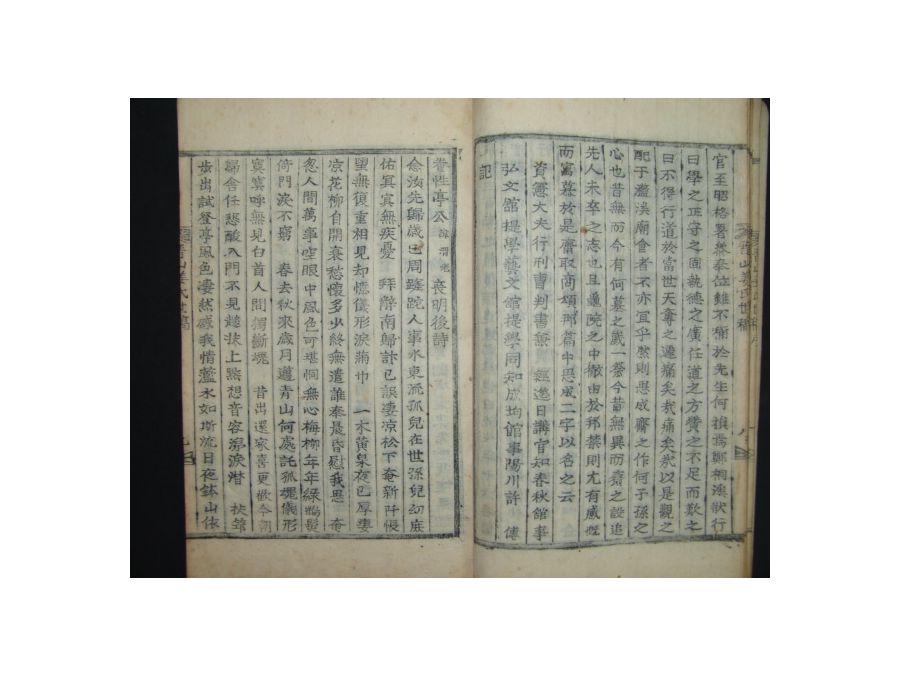 官至昭格署叅奉位雖不稱於先生何損焉鄭桐溪狀行
曰學之正守之固執德之廣任道之方贊之不足而歎之
曰不得行道於當世天奪之遽痛矣哉痛矣哉以是觀之
配于灆溪廟食者不亦宜乎然則思成齋之作何子孫之
心也昔無而今有何墓之歲一祭今昔無異而齋之設追
先人未卒之志也且灆院之中撤由於邦禁則尤有感慨
而寓慕於是齋取商頌那篇中思成二字以名之云
資憲大夫行刑曹判書兼 經筵日講官知春秋館事
弘文館提學藝文館提學同知成均館事陽川許 傳
記
養性亭公諱渭老 喪明後詩
念汝先歸歲已周蹉跎人事水東流孤兒在世孫兒幼庶
佑冥冥無疾憂 拜辭南歸計已誤凄凉松下奄新阡悵
望無復重相見却憶儀形淚滿巾 一木黄泉夜已厚凄
凉花柳自開衰愁懷多少終無遣誰奉晨昏慰我思 奄
忽人間萬事空眼中風色可堪恫無心梅柳年年綠鶴髮
倚門淚不窮 春去秋來歲月遒青山何處託孤魂儀形
寞寞啼無見白首人間獨斷魂 昔出還家喜更歡今朝
歸舍任悲酸入門不見趍床上默想音容涕淚潸 扶筇
步出試登亭風色凄然感我情灆水如斯流日夜鉢山依
晋山姜氏世稿
晋山姜氏世稿